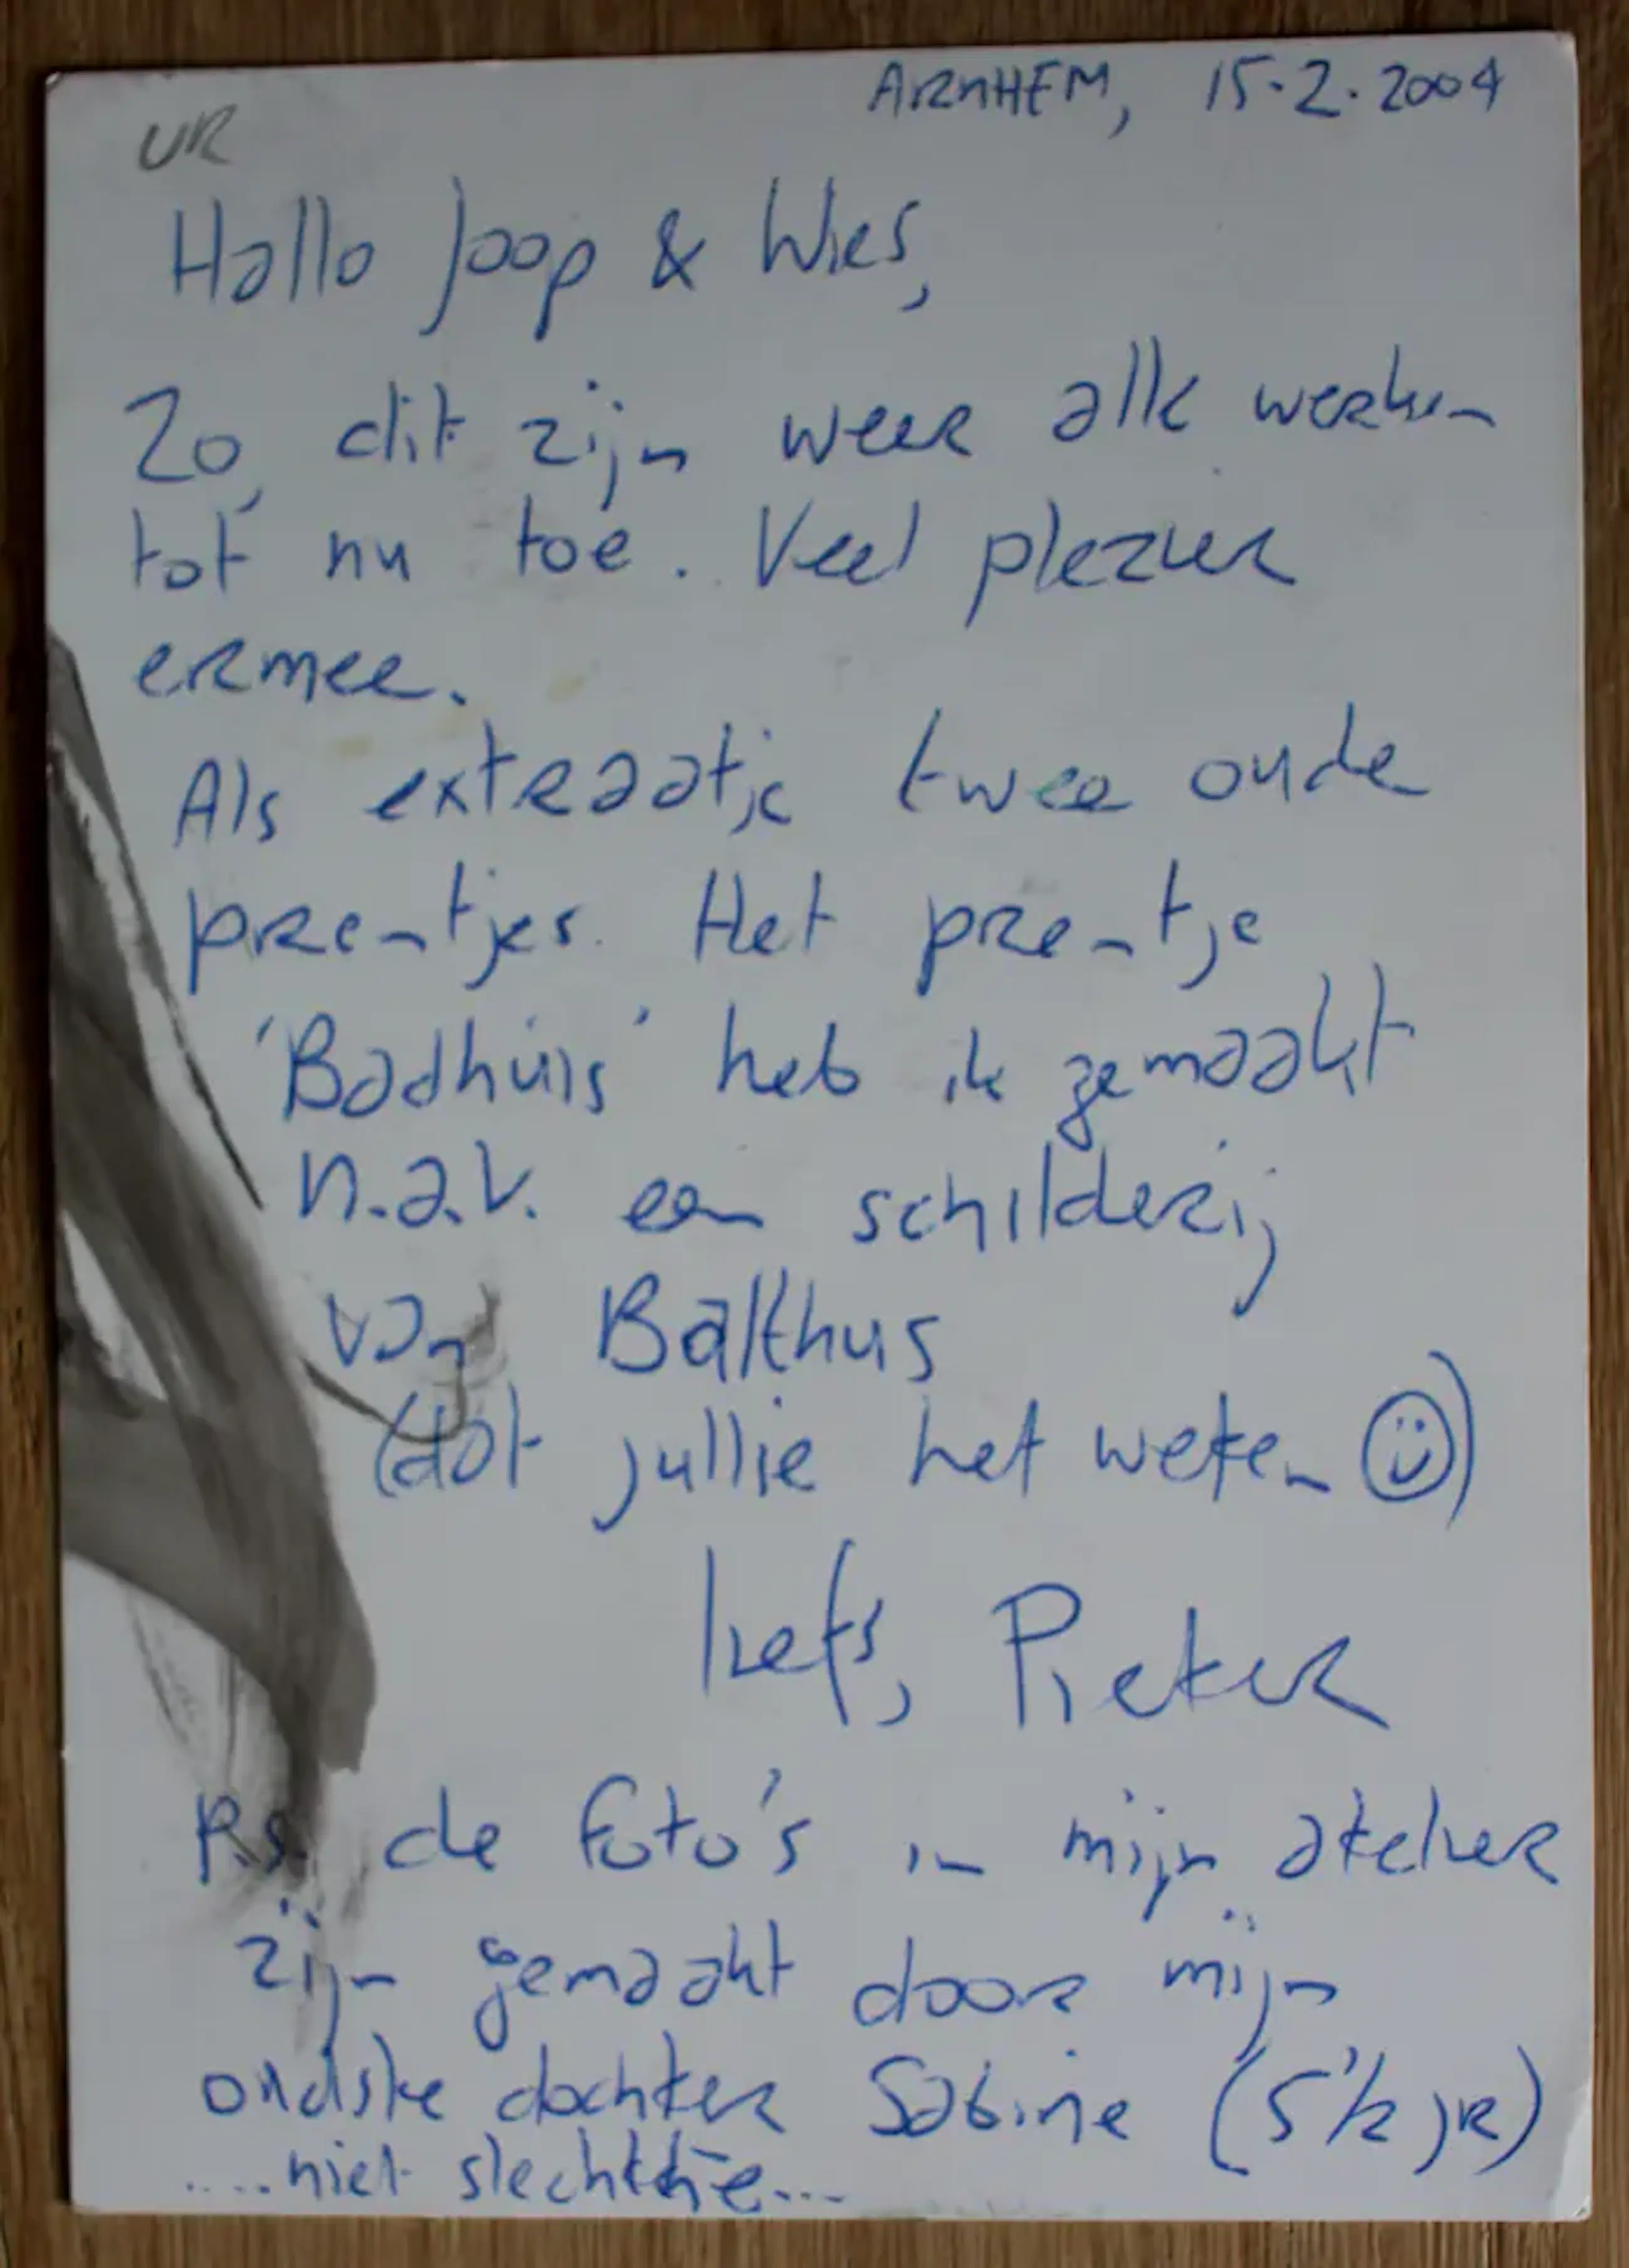 ARNHEM, 15.2.2004
UR
Hallo Joop & Wies,
Zo, dit zijn weer alle werken
tot nu toe. Veel plezier
ermee.
Als extraatje twee oude
prentjes. Het prentje
'Badhuis' heb ik gemaakt
n.a.v. een schilderij
van Balthus
(dat jullie het weten ☺)
liefs, Pieter
P.s. de foto's in mijn atelier
zijn gemaakt door mijn
oudste dochter Sabine (5½ jr)
.....niet slecht hè...